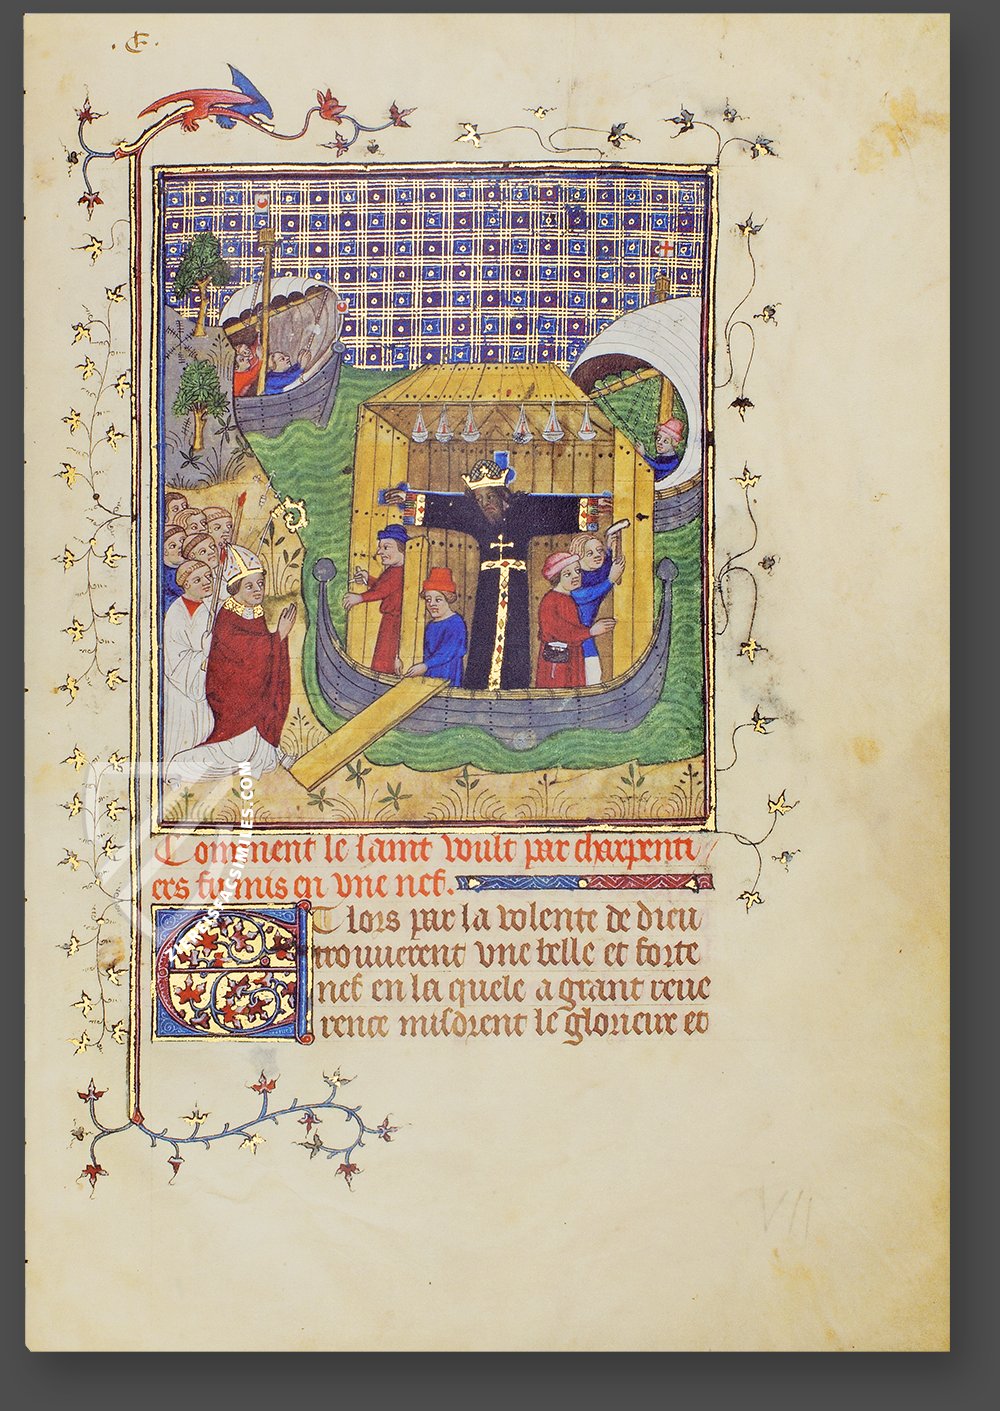 Comment le saint voult par charpenti
ers fu mis en vne nef.
Et lors par la volente de dieu
trouuerent vne belle et forte
nef en la quele a grant reue
rence misdrent le glorieux et
VII
ZIEREISFACSIMILES.COM